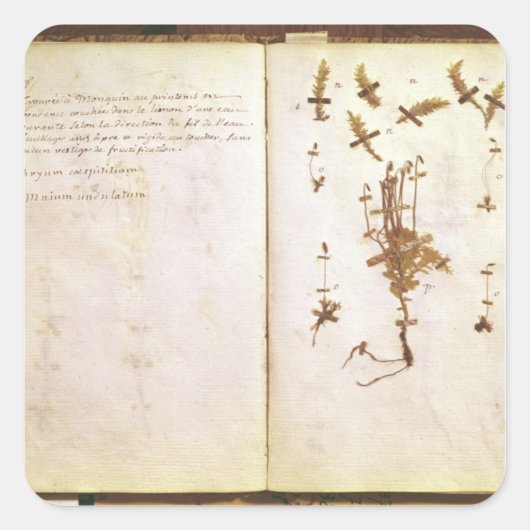 trouvée à Monquin au printems en
ondance couchée dans le limon d'une eau
ourante selon la direction du fil de l'eau.
feuillage assés âpre et rigide au toucher, sans
aucun vestige de fructification.
Bryum cæspititium
Mnium undulatum
n
n
n
n
o
o
o
o
p.